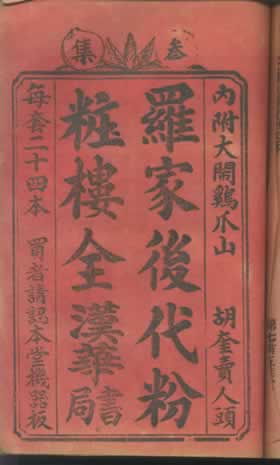 叁集
內附大鬧鷄爪山　胡奎賣人頭
羅家後代粉
粧樓全漢華書局
每套二十四本　買者請認本堂機器板